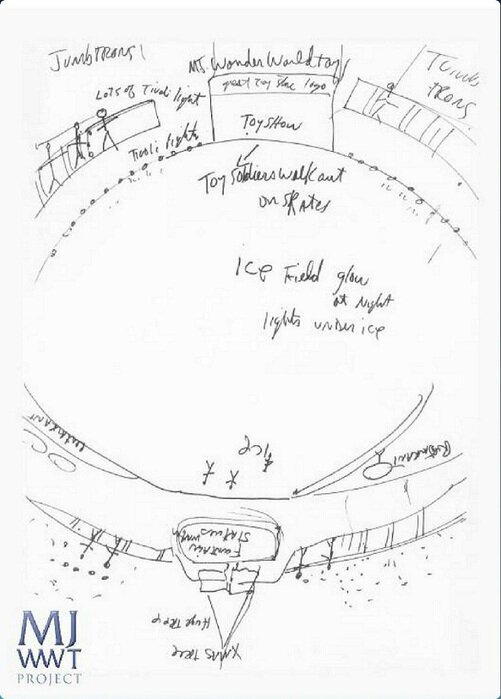 JUMBTRONS
MJ. WonderWorld toys
great toy store logo
TOYSHOW
Lots of Tivoli light
Tivoli lights
TUMB
TRONS
Toy Soldiers walk out
on skates
ICE Field glow
at Night
lights under ice
ice
Restaurant
Restaurant
Fountain
Statues with
Huge tree
XMAS TREE
MJ
WWT
PROJECT